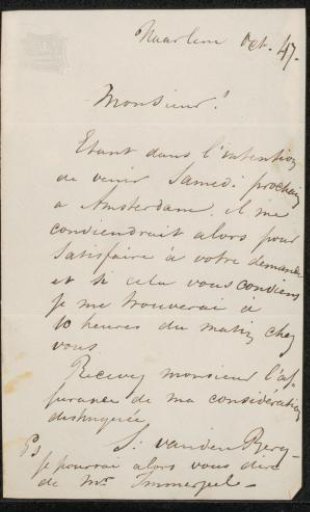 Haarlem Oct. 47.
Monsieur!
Etant dans l'intention
de venir Samedi prochain
a Amsterdam, il me
conviendrait alors pour
satisfaire à votre demande
et si cela vous convient
je me trouverai à
10 heures du matin chez
vous
Recevez monsieur l'as-
surance de ma consideration
distinguée
S: van den Berg
Ps
je pourrai alors vous dire
de Mr Immerzeel